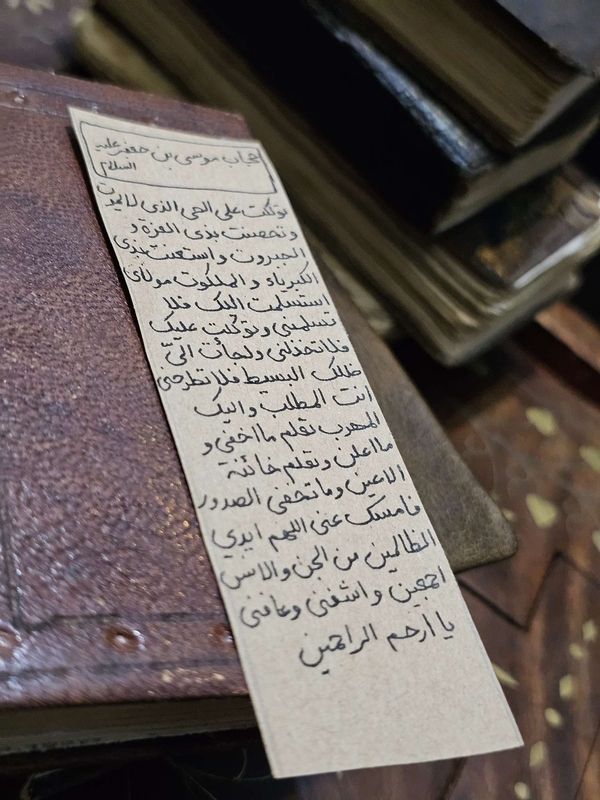 حجاب موسى بن جعفر عليه
السلام
توكلت على الحي الذي لا يموت
وتحصنت بذي العزة و
الجبروت واستعنت بذي
الكبرياء والملكوت مولاي
استسلمت اليك فلا
تسلمني وتوكلت عليك
فلا تخذلني ولجأت الىّ
ظلك البسيط فلا تطرحني
انت المطلب واليك
المهرب تعلم ما اخفي و
ما اعلن وتعلم خائنة
الاعين وما تخفي الصدور
فامسك عني اللهم ايدي
الظالمين من الجن والانس
اجمعين واشفني وعافني
يا ارحم الراحمين